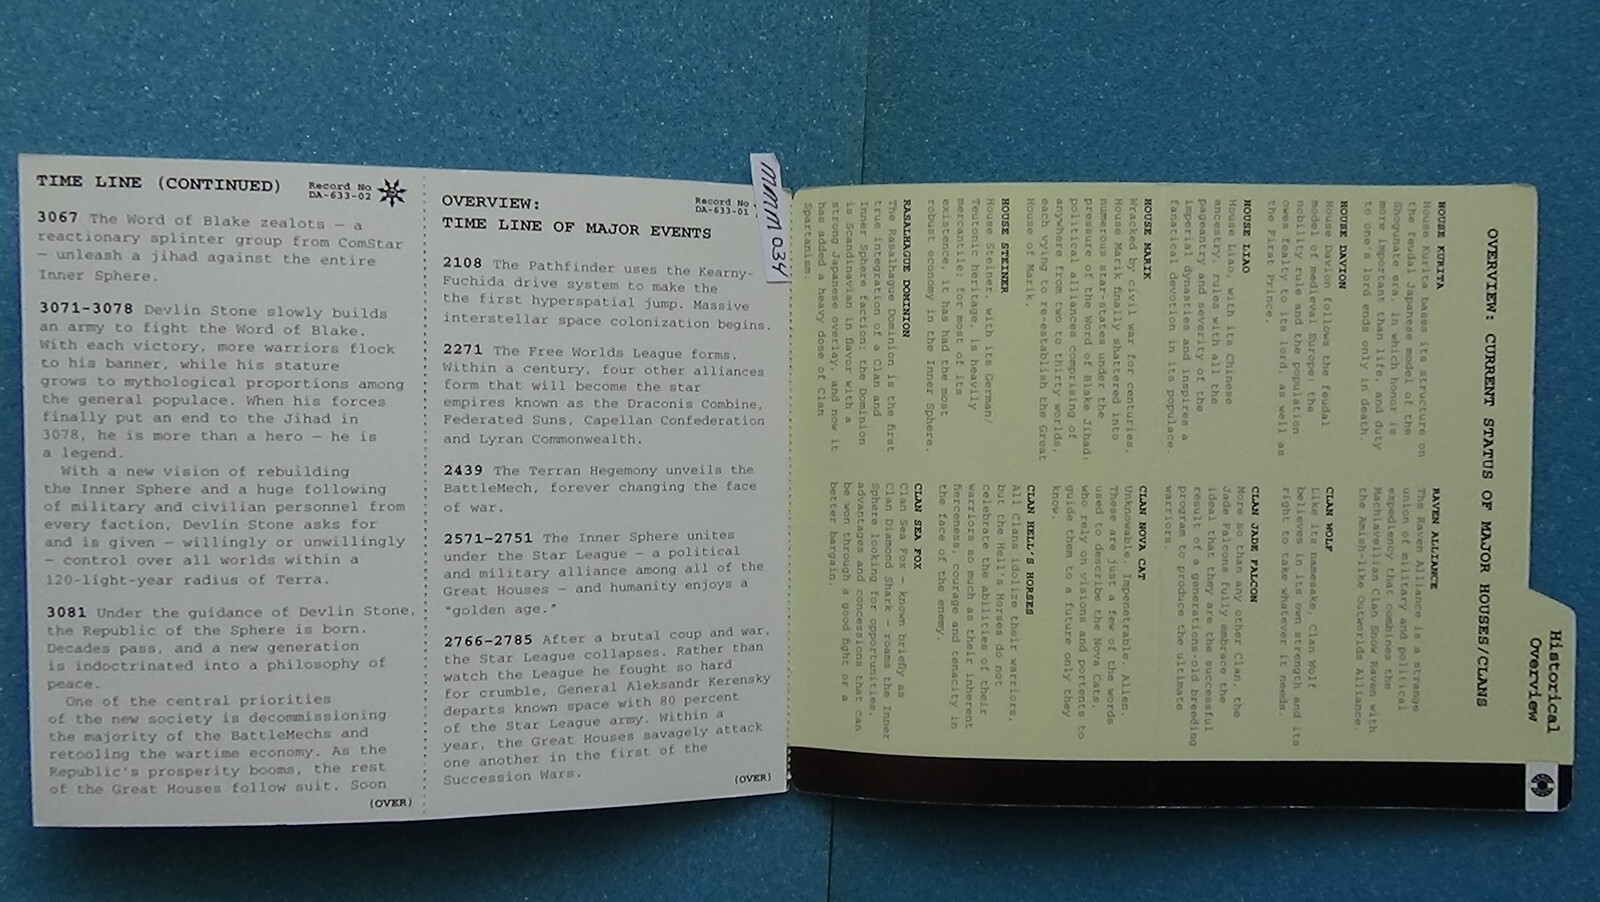 TIME LINE (CONTINUED)
Record No
DA-633-02
3067 The Word of Blake zealots — a
reactionary splinter group from ComStar
— unleash a jihad against the entire
Inner Sphere.
3071-3078 Devlin Stone slowly builds
an army to fight the Word of Blake.
With each victory, more warriors flock
to his banner, while his stature
grows to mythological proportions among
the general populace. When his forces
finally put an end to the Jihad in
3078, he is more than a hero — he is
a legend.
With a new vision of rebuilding
the Inner Sphere and a huge following
of military and civilian personnel from
every faction, Devlin Stone asks for
and is given — willingly or unwillingly
— control over all worlds within a
120-light-year radius of Terra.
3081 Under the guidance of Devlin Stone,
the Republic of the Sphere is born.
Decades pass, and a new generation
is indoctrinated into a philosophy of
peace.
One of the central priorities
of the new society is decommissioning
the majority of the BattleMechs and
retooling the wartime economy. As the
Republic's prosperity booms, the rest
of the Great Houses follow suit. Soon
(OVER)
OVERVIEW:
TIME LINE OF MAJOR EVENTS
Record No
DA-633-01
2108 The Pathfinder uses the Kearny-
Fuchida drive system to make the
the first hyperspatial jump. Massive
interstellar space colonization begins.
2271 The Free Worlds League forms.
Within a century, four other alliances
form that will become the star
empires known as the Draconis Combine,
Federated Suns, Capellan Confederation
and Lyran Commonwealth.
2439 The Terran Hegemony unveils the
BattleMech, forever changing the face
of war.
2571-2751 The Inner Sphere unites
under the Star League — a political
and military alliance among all of the
Great Houses — and humanity enjoys a
"golden age."
2766-2785 After a brutal coup and war,
the Star League collapses. Rather than
watch the League he fought so hard
for crumble, General Aleksandr Kerensky
departs known space with 80 percent
of the Star League army. Within a
year, the Great Houses savagely attack
one another in the first of the
Succession Wars.
(OVER)
MMM034
Historical
Overview
OVERVIEW: CURRENT STATUS OF MAJOR HOUSES/CLANS
HOUSE KURITA
House Kurita bases its structure on
the feudal Japanese model of the
Shogunate era, in which honor is
more important than life, and duty
to one's lord ends only in death.
HOUSE DAVION
House Davion follows the feudal
model of medieval Europe: the
nobility rule and the population
owes fealty to its lord, as well as
the First Prince.
HOUSE LIAO
House Liao, with its Chinese
ancestry, rules with all the
pageantry and severity of the
imperial dynasties and inspires a
fanatical devotion in its populace.
HOUSE MARIK
Wracked by civil war for centuries,
House Marik finally shattered into
numerous star-states under the
pressure of the Word of Blake Jihad;
political alliances comprising of
anywhere from two to thirty worlds,
each vying to re-establish the Great
House of Marik.
HOUSE STEINER
House Steiner, with its German/
Teutonic heritage, is heavily
mercantile; for most of its
existence, it has had the most
robust economy in the Inner Sphere.
RASALHAGUE DOMINION
The Rasalhague Dominion is the first
true integration of a Clan and
Inner Sphere faction; the Dominion
is Scandinavian in flavor with a
strong Japanese overlay, and now it
has added a heavy dose of Clan
Spartanism.
RAVEN ALLIANCE
The Raven Alliance is a strange
union of military and political
expediency that combines the
Machiavellian Clan Snow Raven with
the Amish-like Outworlds Alliance.
CLAN WOLF
Like its namesake, Clan Wolf
believes in its own strength and its
right to take whatever it needs.
CLAN JADE FALCON
More so than any other Clan, the
Jade Falcons fully embrace the
ideal that they are the successful
result of a generations-old breeding
program to produce the ultimate
warriors.
CLAN NOVA CAT
Unknowable. Impenetrable. Alien.
These are just a few of the words
used to describe the Nova Cats,
who rely on visions and portents to
guide them to a future only they
know.
CLAN HELL'S HORSES
All Clans idolize their warriors,
but the Hell's Horses do not
celebrate the abilities of their
warriors so much as their inherent
fierceness, courage and tenacity in
the face of the enemy.
CLAN SEA FOX
Clan Sea Fox — known briefly as
Clan Diamond Shark — roams the Inner
Sphere looking for opportunities,
advantages and concessions that can
be won through a good fight or a
better bargain.